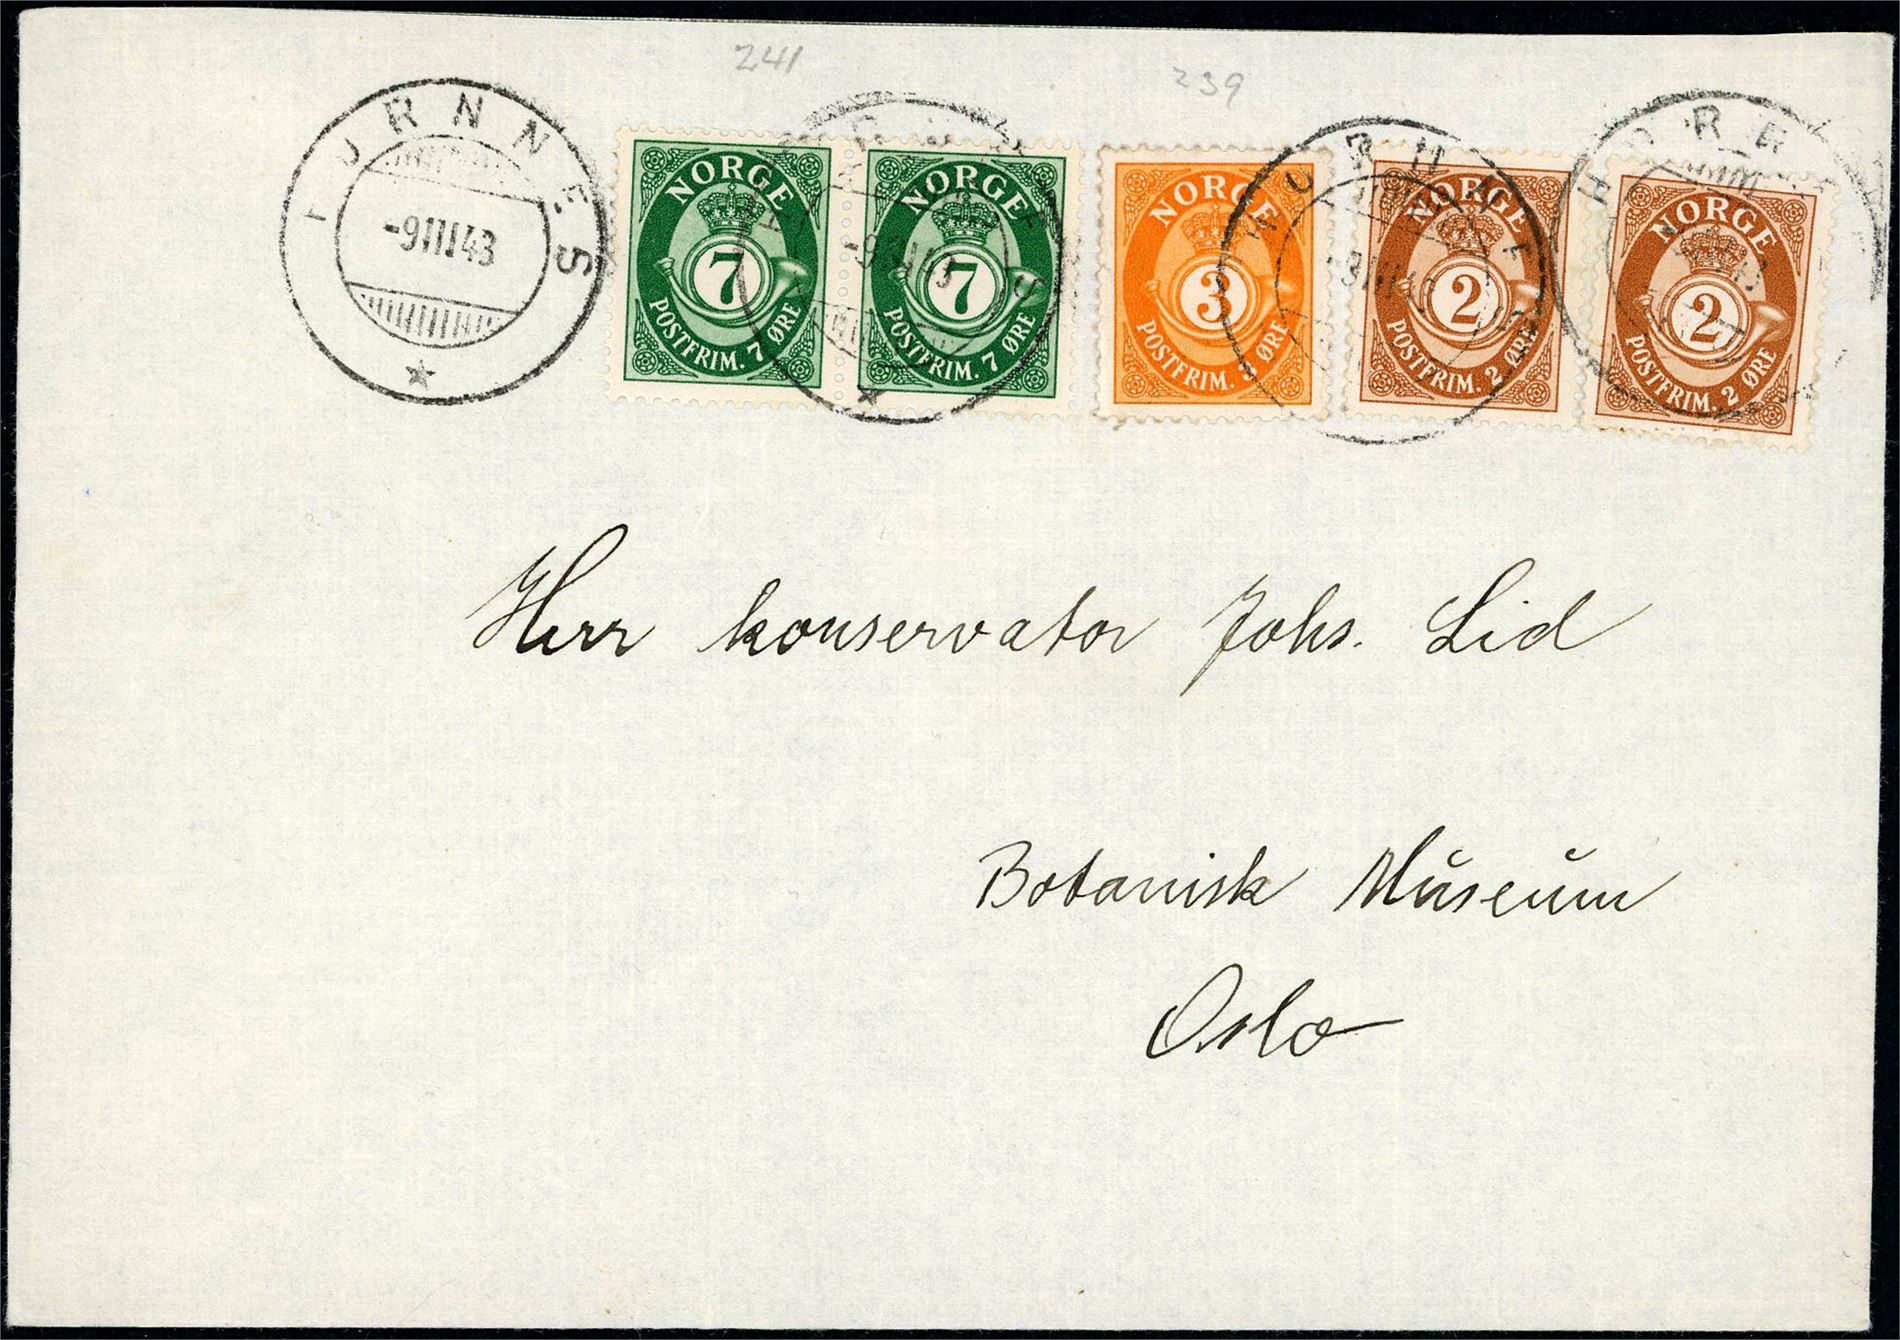 241
239
-9III43
NORGE
7
POSTFRIM. 7 ØRE
NORGE
7
POSTFRIM. 7 ØRE
NORGE
3
POSTFRIM. 3 ØRE
NORGE
2
POSTFRIM. 2 ØRE
NORGE
2
POSTFRIM. 2 ØRE
Herr konservator Johs. Lid
Botanisk Museum
Oslo